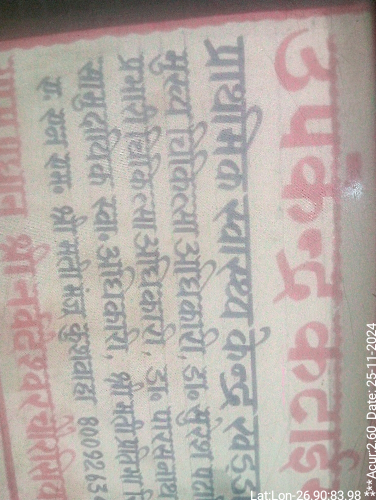 उपकेन्द्र कटाई
प्राथमिक स्वास्थ्य केन्द्र खड्ड
मुख्य चिकित्सा अधिकारी, डा० सुरेश पटा
प्रभारी चिकित्सा अधिकारी, डा० पारसनाथ
सामुदायिक स्वा० अधिकारी, श्रीमती प्रतिभा
ए. एन. एम० श्रीमती मंजू कुशवाहा 8009263
ग्राम प्रधान श्री नर्वदेश्वर चौरसिया
Lat Lon-26.90:83.98 ***Acur:2.60 Date: 25-11-2024